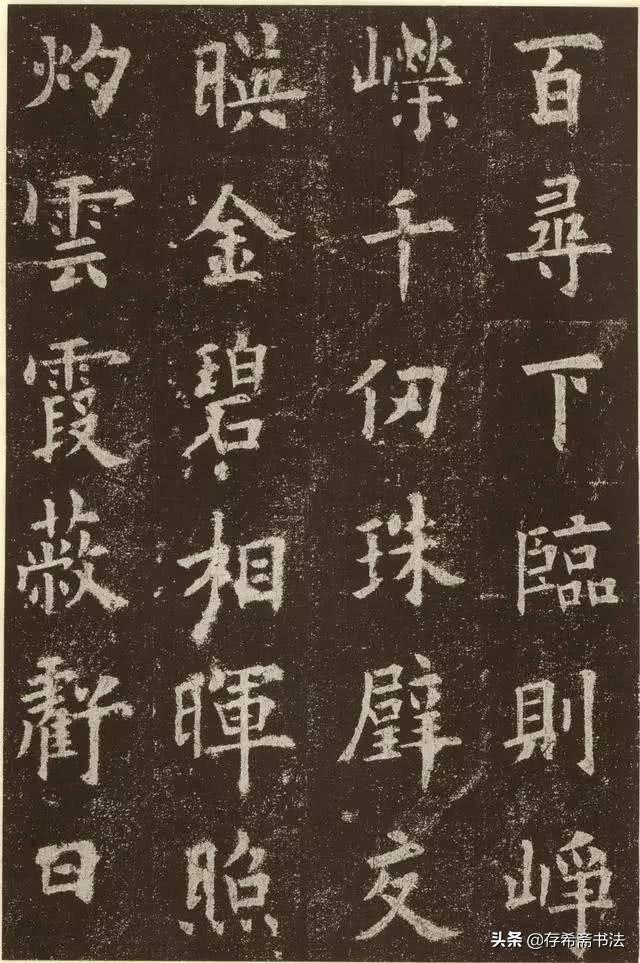 百尋下臨則崢
嶸千仞珠壁交
暎金碧相暉照
灼雲霞蔽虧日
头条 @存希斋书法